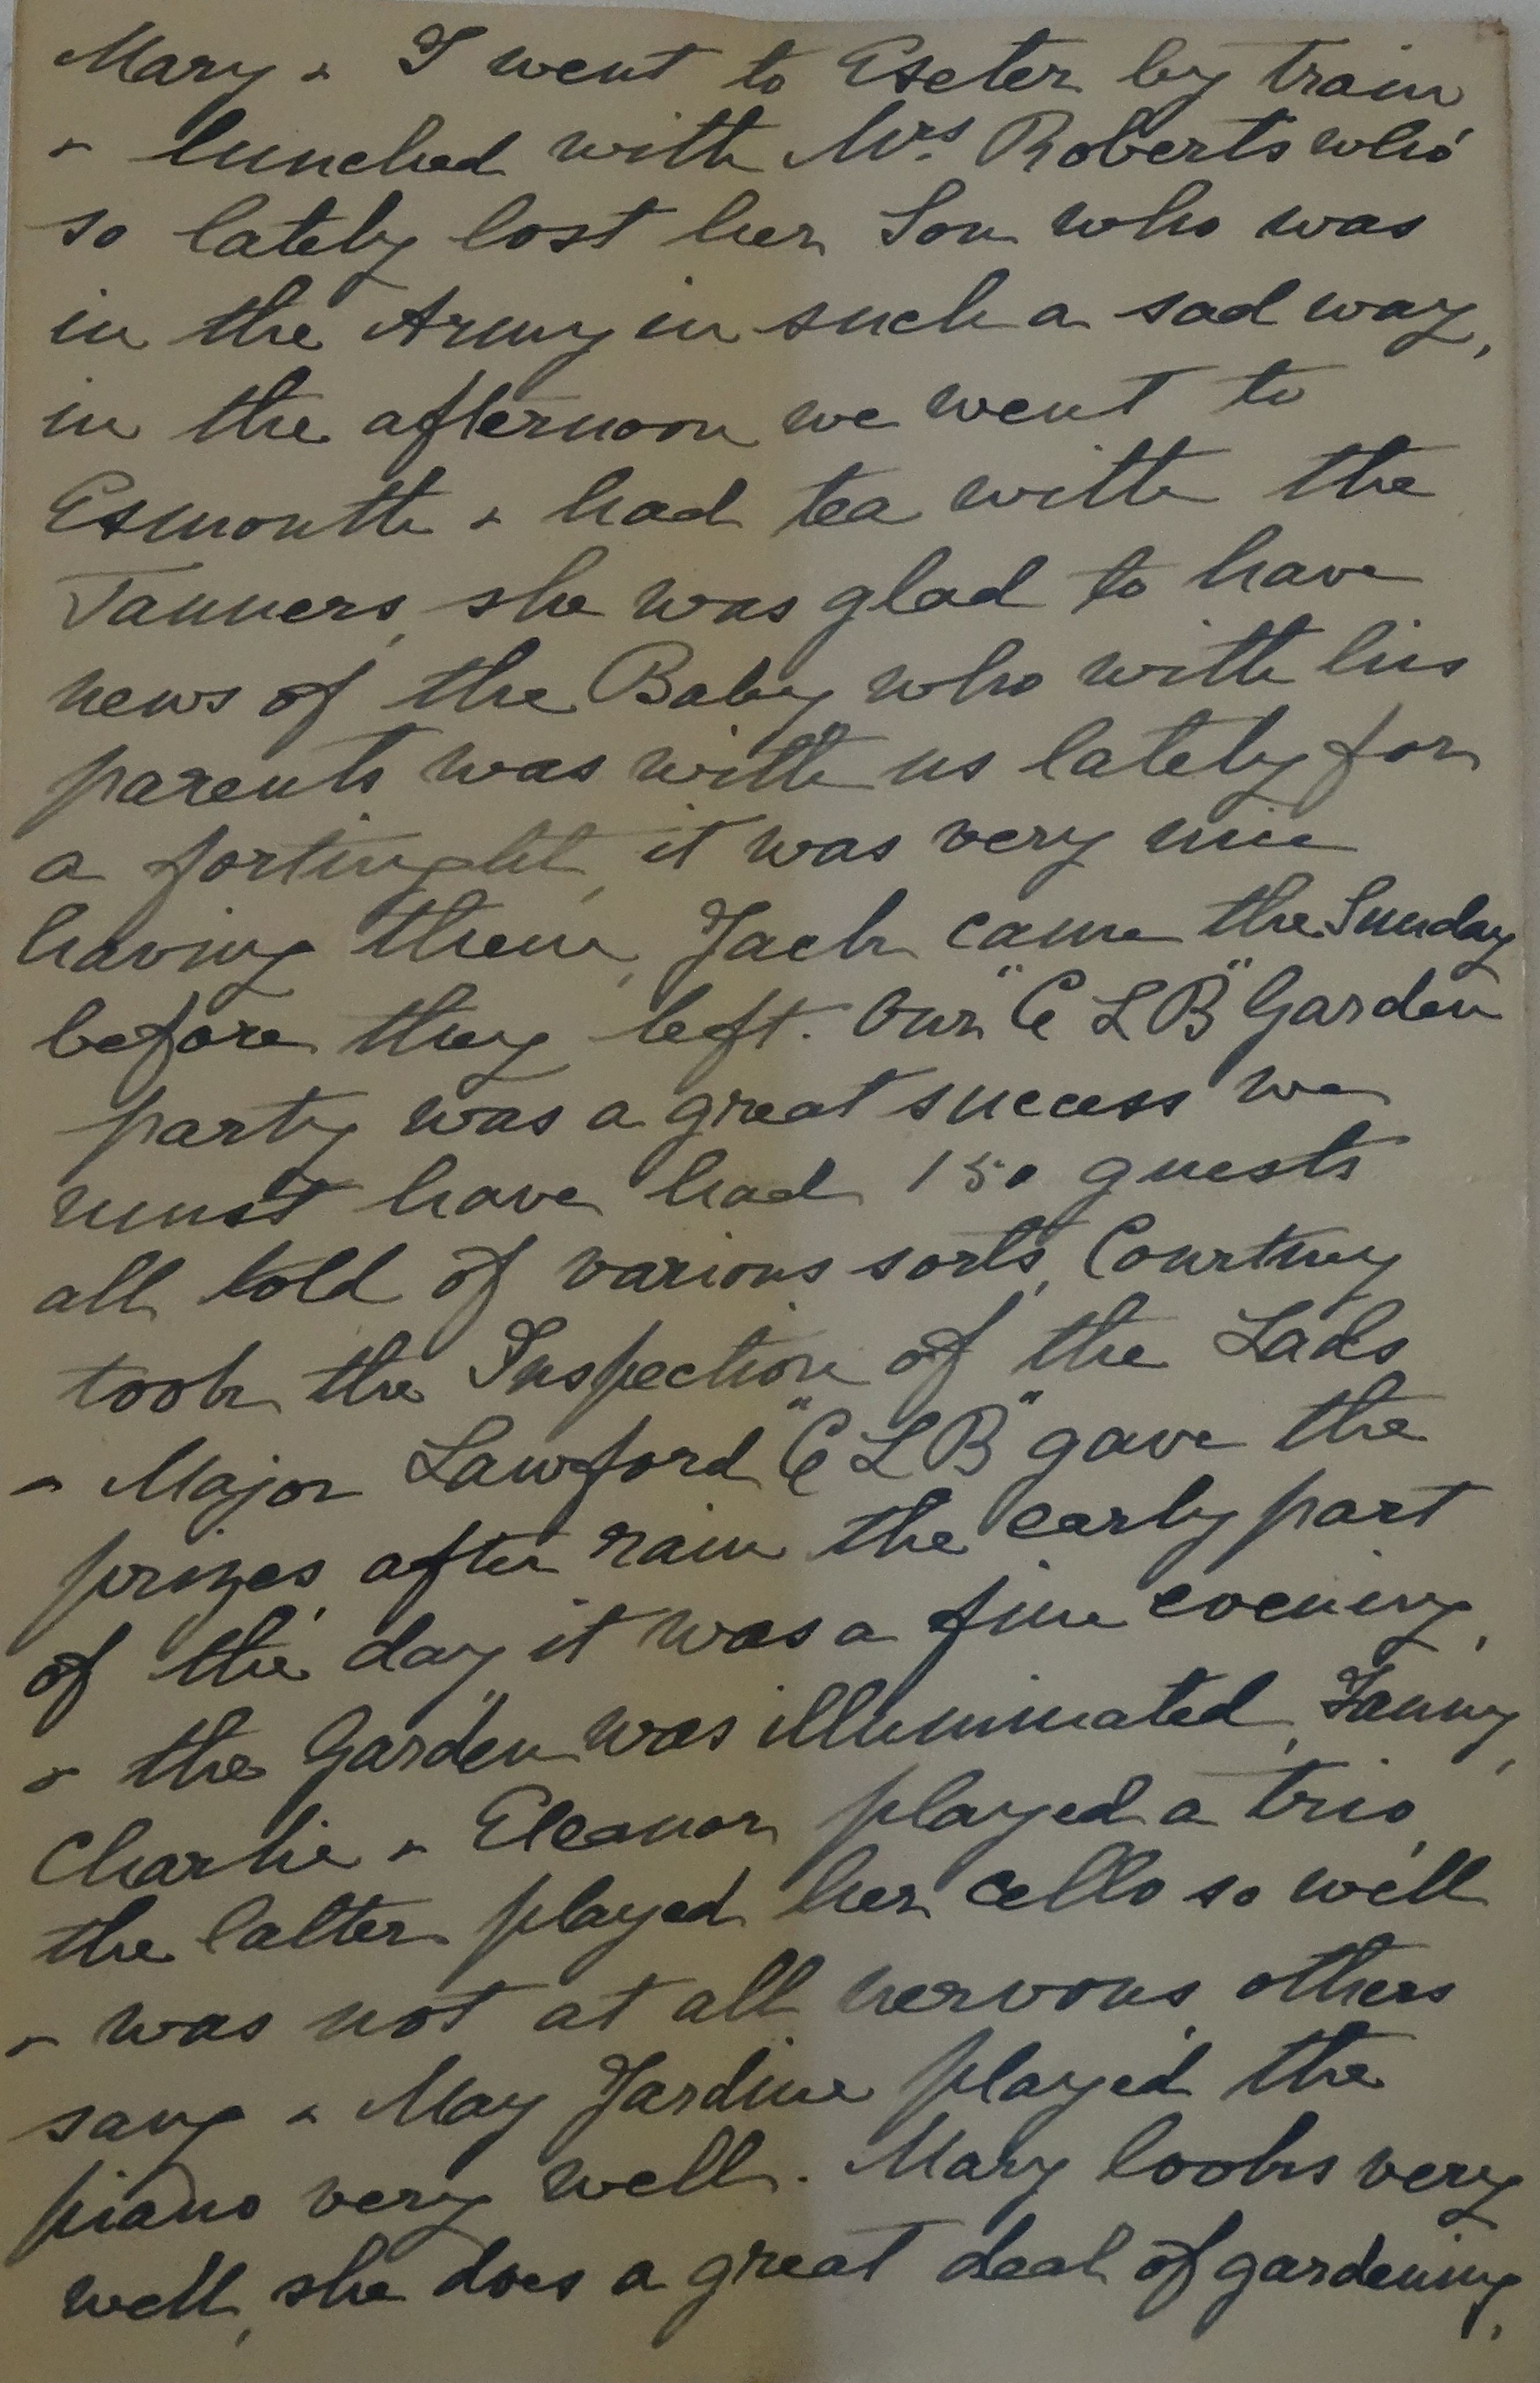 Mary & I went to Exeter by train
& lunched with Mrs. Roberts who
so lately lost her Son who was
in the Army in such a sad way,
in the afternoon we went to
Exmouth & had tea with the
Tanners, she was glad to have
news of the Baby who with his
parents was with us lately for
a fortinght, it was very nice
having them, Jack came the Sunday
before they left. Our "C L B" Garden
party was a great success we
must have had 150 guests
all told of various sorts, Courtney
took the Inspection of the Lads
& Major Lawford "C L B" gave the
prizes, after rain the early part
of the day, it was a fine evening,
& the Garden was illuminated, Fanny,
Charlie & Eleanor played a trio,
the latter played her cello so well
& was not at all nervous, others
sang & May Jardine played the
piano very well. Mary looks very
well, she does a great deal of gardening,